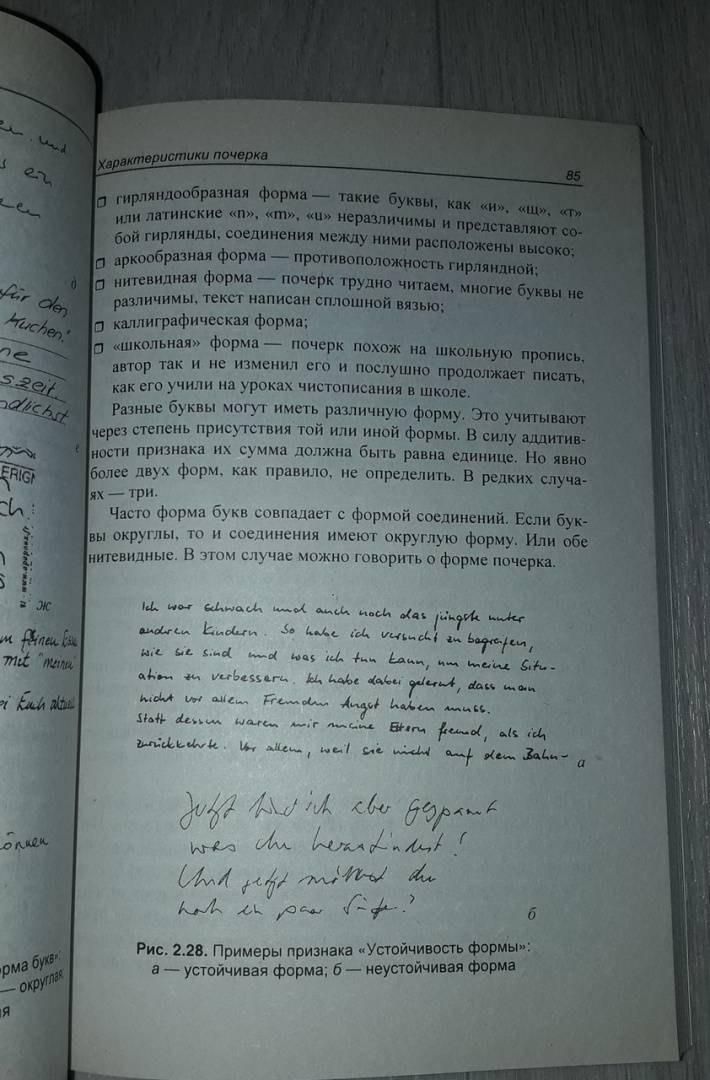 en. und
s en
für den
Kuchen."
ne
szeit
ndlichst
ERIGN
ch
ж
mit "meinen
ei Euch aktuell
önnen
орма букв»:
— округлая;
я
Характеристики почерка 85
❒ гирляндообразная форма — такие буквы, как «и», «щ», «т»
или латинские «n», «m», «u» неразличимы и представляют со-
бой гирлянды, соединения между ними расположены высоко;
❒ аркообразная форма — противоположность гирляндной;
❒ нитевидная форма — почерк трудно читаем, многие буквы не
различимы, текст написан сплошной вязью;
❒ каллиграфическая форма;
❒ «школьная» форма — почерк похож на школьную пропись,
автор так и не изменил его и послушно продолжает писать,
как его учили на уроках чистописания в школе.
Разные буквы могут иметь различную форму. Это учитывают
через степень присутствия той или иной формы. В силу аддитив-
ности признака их сумма должна быть равна единице. Но явно
более двух форм, как правило, не определить. В редких случа-
ях — три.
Часто форма букв совпадает с формой соединений. Если бук-
вы округлы, то и соединения имеют округлую форму. Или обе
нитевидные. В этом случае можно говорить о форме почерка.
Ich war schwach und auch noch das jüngste unter
anderen Kindern. So habe ich versucht zu begreifen,
wie sie sind und was ich tun kann, um meine Situ-
ation zu verbessern. Ich habe dabei gelernt, dass man
nicht vor allem Fremden Angst haben muss.
Statt dessen waren mir meine Eltern fremd, als ich
zurückkehrte. Vor allem, weil sie nicht auf dem Bahn- а
Jetzt bin ich aber gespannt
was du herausfindest!
Und jetzt möchtest du
noch ein paar
б
Рис. 2.28. Примеры признака «Устойчивость формы»:
а — устойчивая форма; б — неустойчивая форма